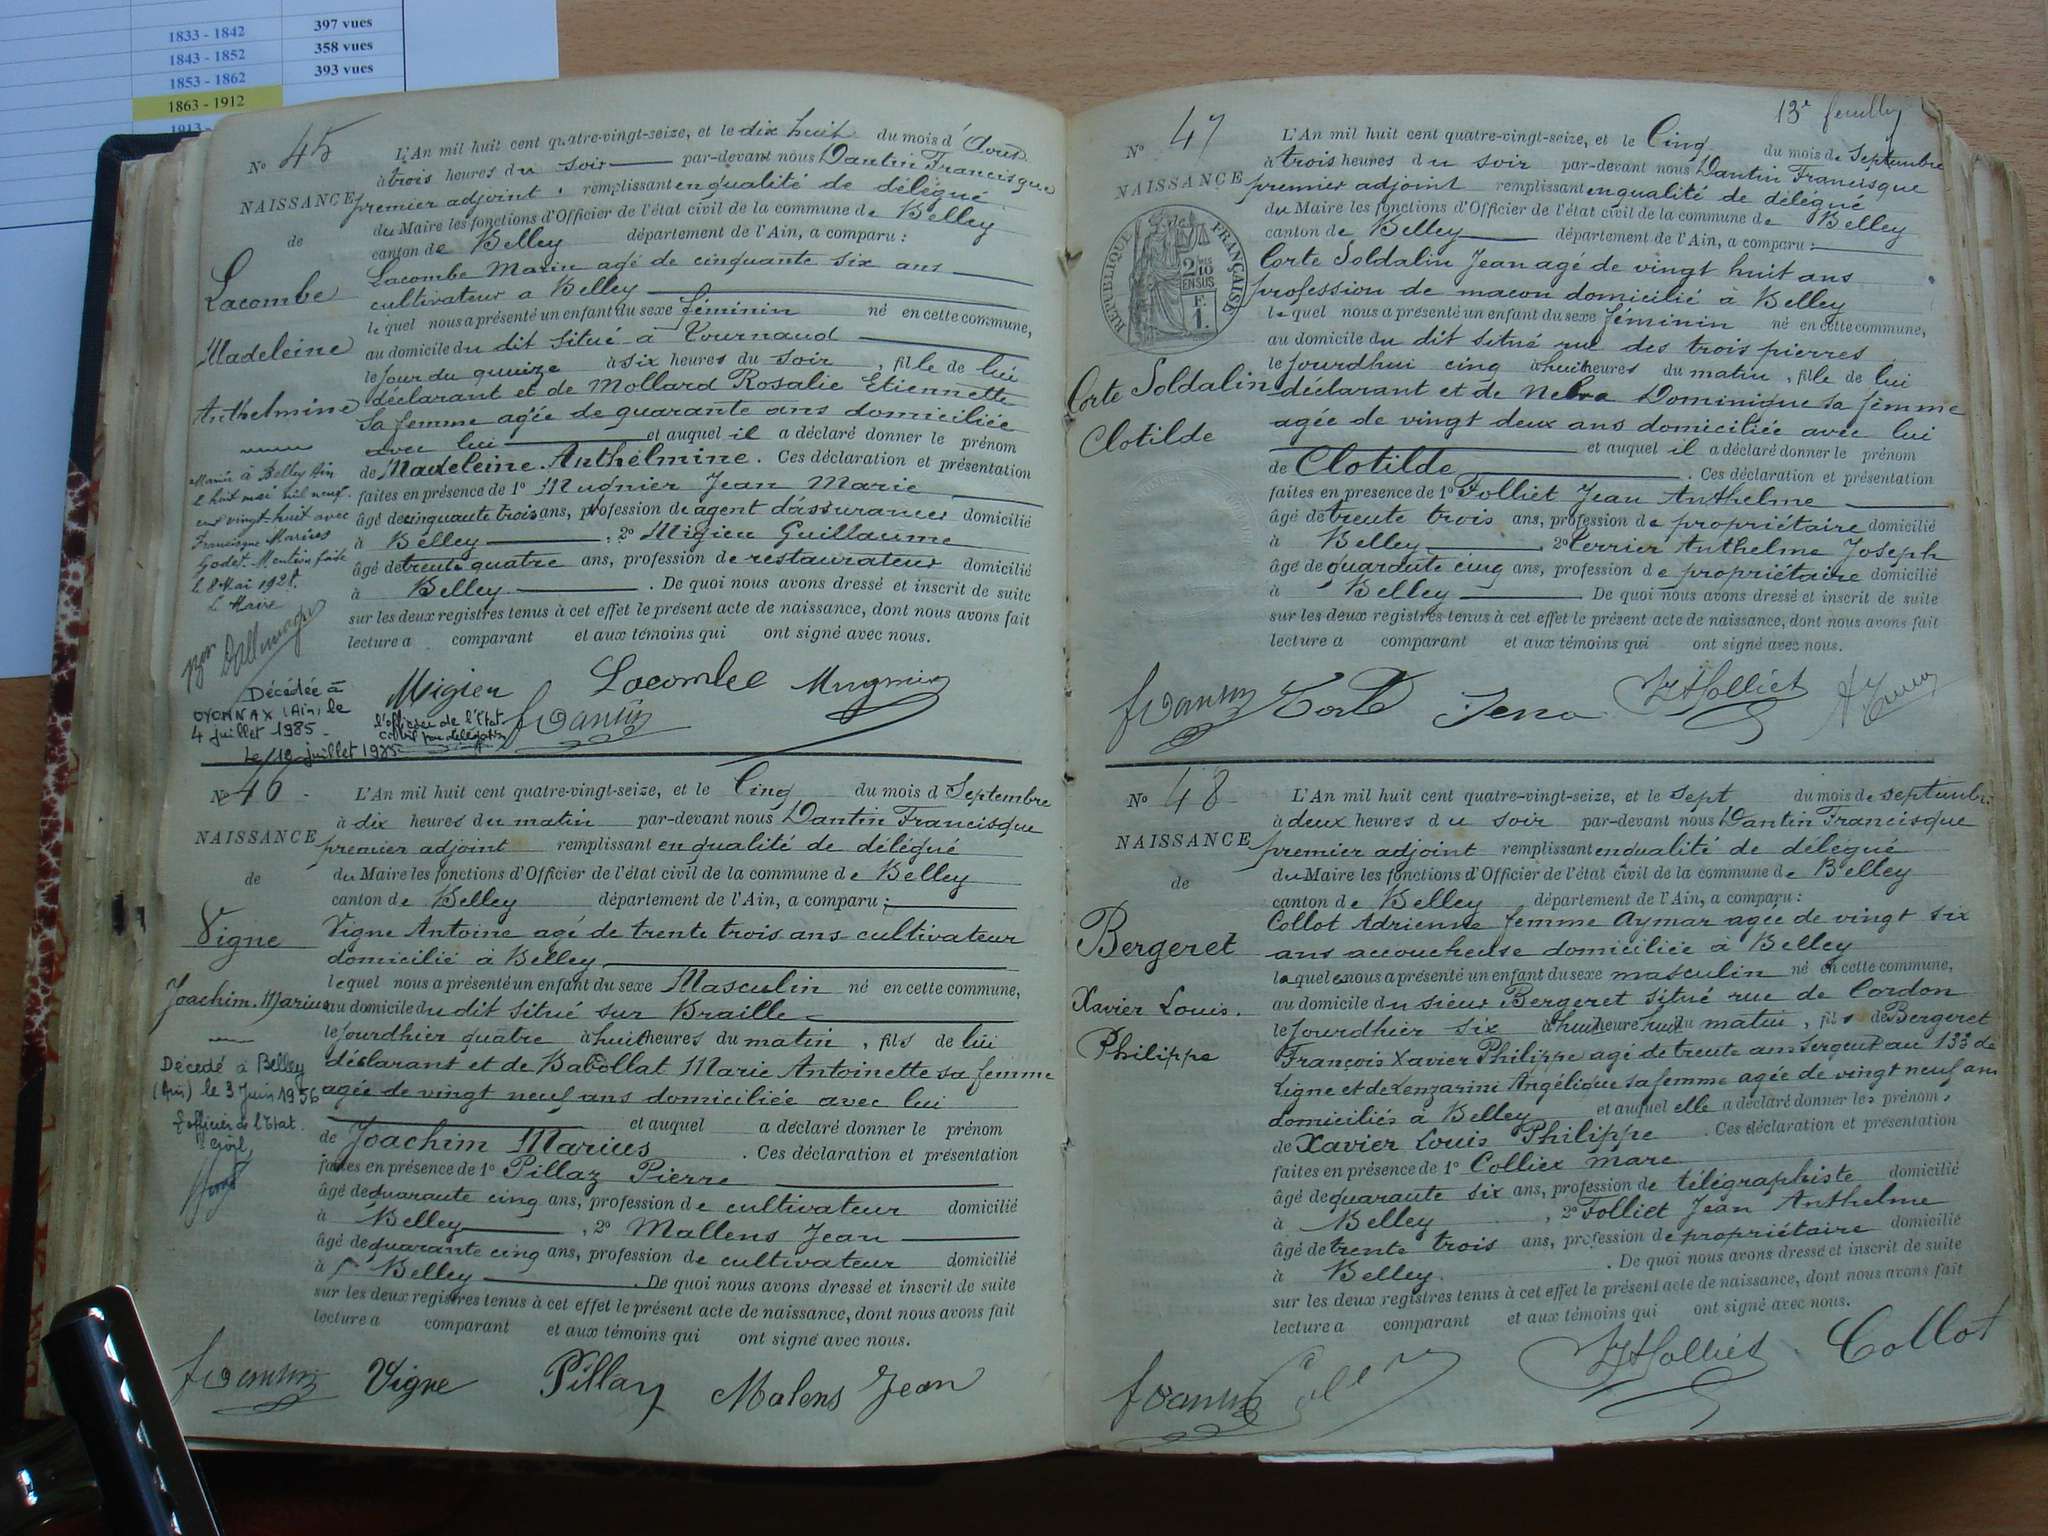 397 vues
1833 - 1842
358 vues
1843 - 1852
393 vues
1853 - 1862
1863 - 1912
N° 45
NAISSANCE
de
Lacombe
Madeleine
Anthelmine
Marié à Belley Ain
le huit mai mil neuf
cent vingt-huit avec
Francisque Marius
Godet. Mention faite
le 8 Mai 1928.
Le Maire
Décédée à
OYONNAX (Ain) le
4 juillet 1985
Le 18 juillet 1985
l'officier de l'Etat
civil par délégation
L'An mil huit cent quatre-vingt-seize, et le dix huit du mois d'Aout
à trois heures du soir par-devant nous Dantin Francisque
premier adjoint remplissant en qualité de délégué
du Maire les fonctions d'Officier de l'état civil de la commune de Belley
canton de Belley département de l'Ain, a comparu :
Lacombe Marin agé de cinquante six ans
cultivateur a Belley
lequel nous a présenté un enfant du sexe féminin né en cette commune,
au domicile du dit situé à Tournaud
le jour du quinze à six heures du soir, fille de lui
déclarant et de Mollard Rosalie Etiennette
sa femme agée de quarante ans domiciliée
avec lui et auquel il a déclaré donner le prénom
de Madeleine. Anthelmine. Ces déclaration et présentation
faites en présence de 1° Mugnier Jean Marie
âgé de cinquante trois ans, profession de agent d'assurances domicilié
à Belley, 2° Migieu Guillaume
âgé de trente quatre ans, profession de restaurateur domicilié
à Belley. De quoi nous avons dressé et inscrit de suite
sur les deux registres tenus à cet effet le présent acte de naissance, dont nous avons fait
lecture a comparant et aux témoins qui ont signé avec nous.
Migieu Lacombe Mugnier
fDantin
N° 46
NAISSANCE
de
Vigne
Joachim. Marius
Décédé à Belley
(Ain) le 3 Juin 1956
l'officier de l'Etat
Civil,
L'An mil huit cent quatre-vingt-seize, et le Cinq du mois d Septembre
à dix heures du matin par-devant nous Dantin Francisque
premier adjoint remplissant en qualité de délégué
du Maire les fonctions d'Officier de l'état civil de la commune de Belley
canton de Belley département de l'Ain, a comparu :
Vigne Antoine agé de trente trois ans cultivateur
domicilié à Belley
lequel nous a présenté un enfant du sexe Masculin né en cette commune,
au domicile du dit situé sur Braille
le jourdhier quatre à huit heures du matin, fils de lui
déclarant et de Babollat Marie Antoinette sa femme
agée de vingt neuf ans domiciliée avec lui
et auquel a déclaré donner le prénom
de Joachim Marius. Ces déclaration et présentation
faites en présence de 1° Pillaz Pierre
âgé de quarante cinq ans, profession de cultivateur domicilié
à Belley, 2° Mallens Jean
âgé de quarante cinq ans, profession de cultivateur domicilié
à Belley. De quoi nous avons dressé et inscrit de suite
sur les deux registres tenus à cet effet le présent acte de naissance, dont nous avons fait
lecture a comparant et aux témoins qui ont signé avec nous.
fDantin Vigne Pillaz Malens Jean
13e feuillet
N° 47
NAISSANCE
RÉPUBLIQUE FRANÇAISE
2/10 EN SUS
F. 1.
Corte Soldalin
Clotilde
L'An mil huit cent quatre-vingt-seize, et le Cinq du mois de Septembre
à trois heures du soir par-devant nous Dantin Francisque
premier adjoint remplissant en qualité de délégué
du Maire les fonctions d'Officier de l'état civil de la commune de Belley
canton de Belley département de l'Ain, a comparu :
Corte Soldalin Jean agé de vingt huit ans
profession de maçon domicilié à Belley
lequel nous a présenté un enfant du sexe féminin né en cette commune,
au domicile du dit situé rue des trois pierres
le jourdhui cinq à huit heures du matin, fille de lui
déclarant et de Dominique sa femme
agée de vingt deux ans domiciliée avec lui
et auquel il a déclaré donner le prénom
de Clotilde. Ces déclaration et présentation
faites en présence de 1° Folliet Jean Anthelme
âgé de trente trois ans, profession de propriétaire domicilié
à Belley, 2° Perrier Anthelme Joseph
âgé de quarante cinq ans, profession de propriétaire domicilié
à Belley De quoi nous avons dressé et inscrit de suite
sur les deux registres tenus à cet effet le présent acte de naissance, dont nous avons fait
lecture a comparant et aux témoins qui ont signé avec nous.
fDantin Corte Folliet
N° 48
NAISSANCE
de
Bergeret
Xavier Louis.
Philippe
L'An mil huit cent quatre-vingt-seize, et le sept du mois de septembre
à deux heures du soir par-devant nous Dantin Francisque
premier adjoint remplissant en qualité de délégué
du Maire les fonctions d'Officier de l'état civil de la commune de Belley
canton de Belley département de l'Ain, a comparu :
Collot Adrienne femme Aymar agée de vingt six
ans accoucheuse domiciliée à Belley
laquelle nous a présenté un enfant du sexe masculin né en cette commune,
au domicile du sieur Bergeret situé rue de Cordon
le jourdhier six à huit heure du matin, fils de Bergeret
François Xavier Philippe agé de trente ans Sergent au 133 de
Ligne et de Lenzarini Angélique sa femme agée de vingt neuf ans
domiciliés à Belley et auquel elle a déclaré donner les prénoms
de Xavier Louis Philippe. Ces déclaration et présentation
faites en présence de 1° Colliex Marc
âgé de quarante six ans, profession de télégraphiste domicilié
à Belley, 2° Folliet Jean Anthelme
âgé de trente trois ans, profession de propriétaire domicilié
à Belley. De quoi nous avons dressé et inscrit de suite
sur les deux registres tenus à cet effet le présent acte de naissance, dont nous avons fait
lecture a comparant et aux témoins qui ont signé avec nous.
fDantin Folliet Collot